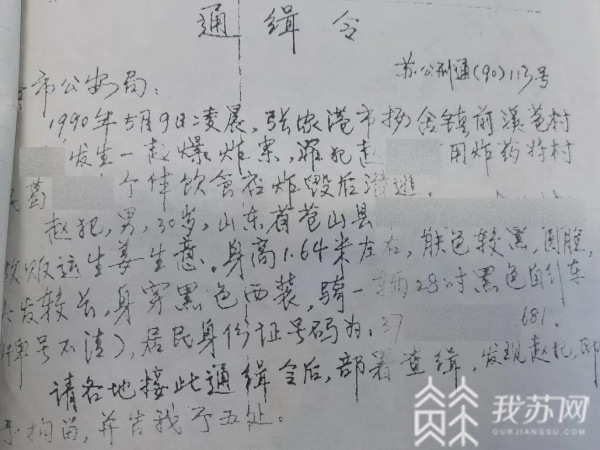 通缉令
苏公刑通(90)113号
市公安局：
1990年5月9日凌晨，张家港市杨舍镇前溪苑村
发生一起爆炸案，罪犯赵 用炸药将村
民葛 个体饮食店炸毁后潜逃。
赵犯，男，30岁，山东省苍山县
贩运生姜生意。身高1.64米左右，肤色较黑，圆脸，
头发较长，身穿黑色西装，骑一辆28吋黑色自行车
(牌号不清)，居民身份证号码为：37 681.
请各地接此通缉令后，部署查缉，发现赵犯，即
予拘留，并告我厅五处。
我苏网
OURJIANGSU.COM